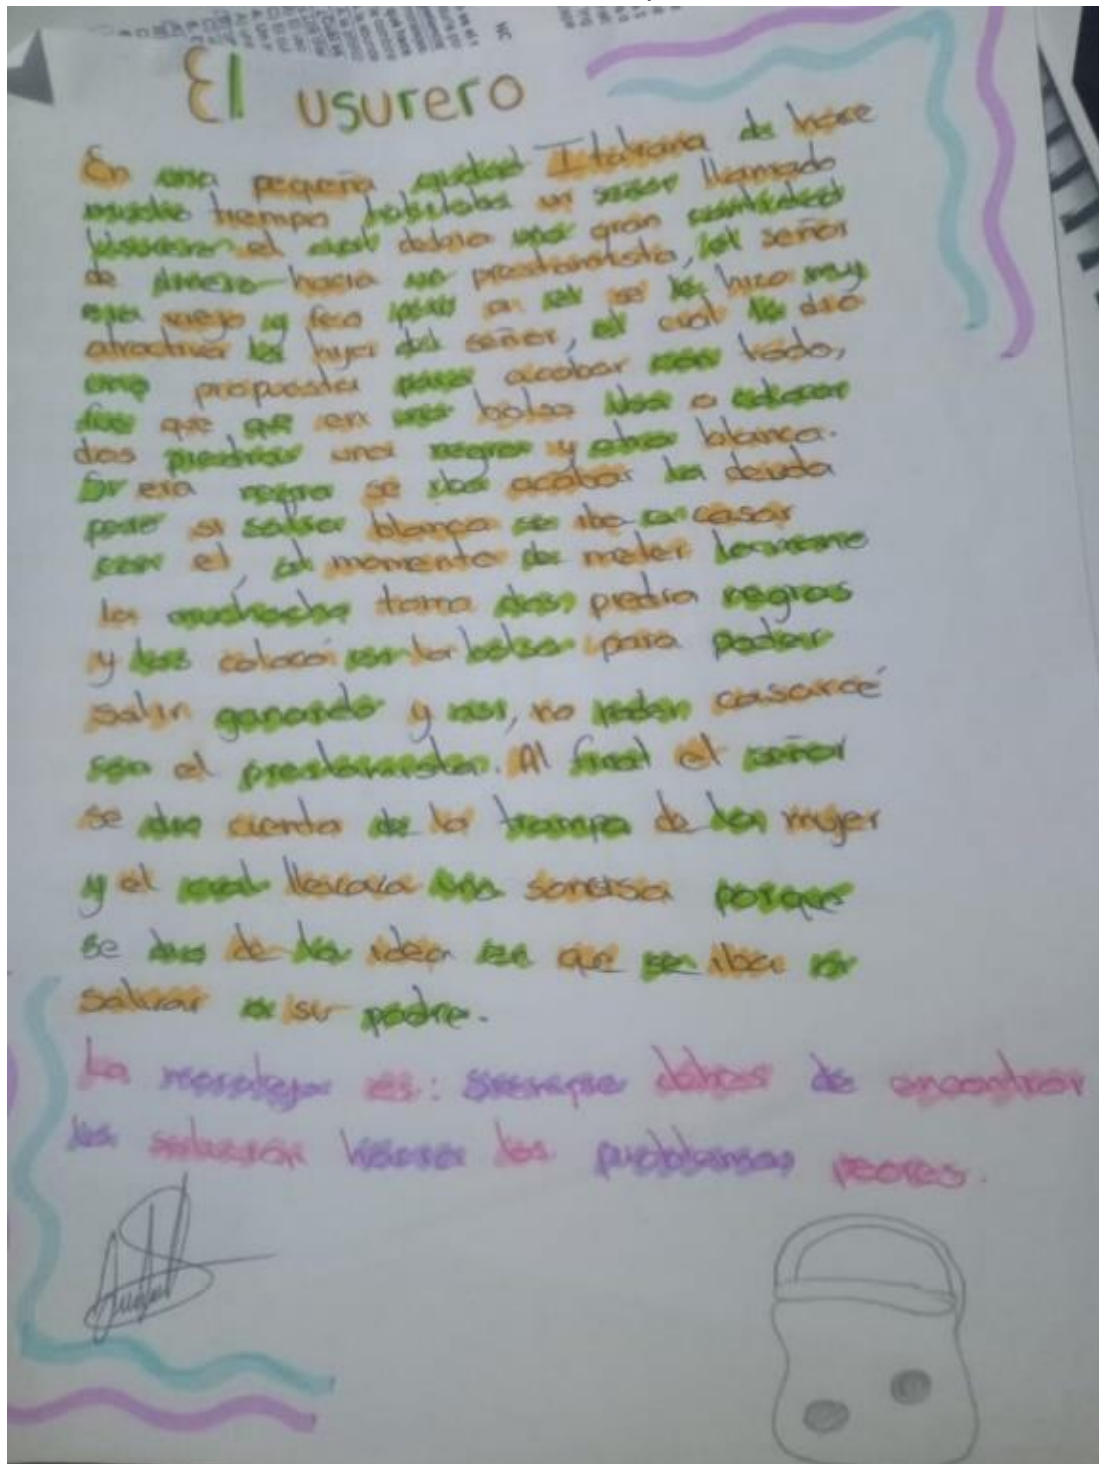 El usurero
En una pequeña ciudad Italiana de hace
mucho tiempo habitaba un señor llamado
el cual debia una gran cantidad
de dinero hacia un prestamista, el señor
era viejo y feo pero a el se le hizo muy
atractiva la hija del señor, el cual le dio
una propuesta para acabar con todo,
fue que que en una bolsa iba a colocar
dos piedras una negra y otra blanca.
Si era negra se iba acabar la deuda
pero si salia blanca se iba a casar
con el, al momento de meter la mano
la muchacha toma dos piedra negras
y las colocó en la bolsa para poder
salir ganando y asi, no poder casarcé
con el prestamista. Al final el señor
se dio cuenta de la trampa de la mujer
y el cual llevaba una sonrisa porque
se dio de la idea de que se iba a
salvar a su padre.
La moraleja es: Siempre debes de encontrar
la solución hacia los peores.